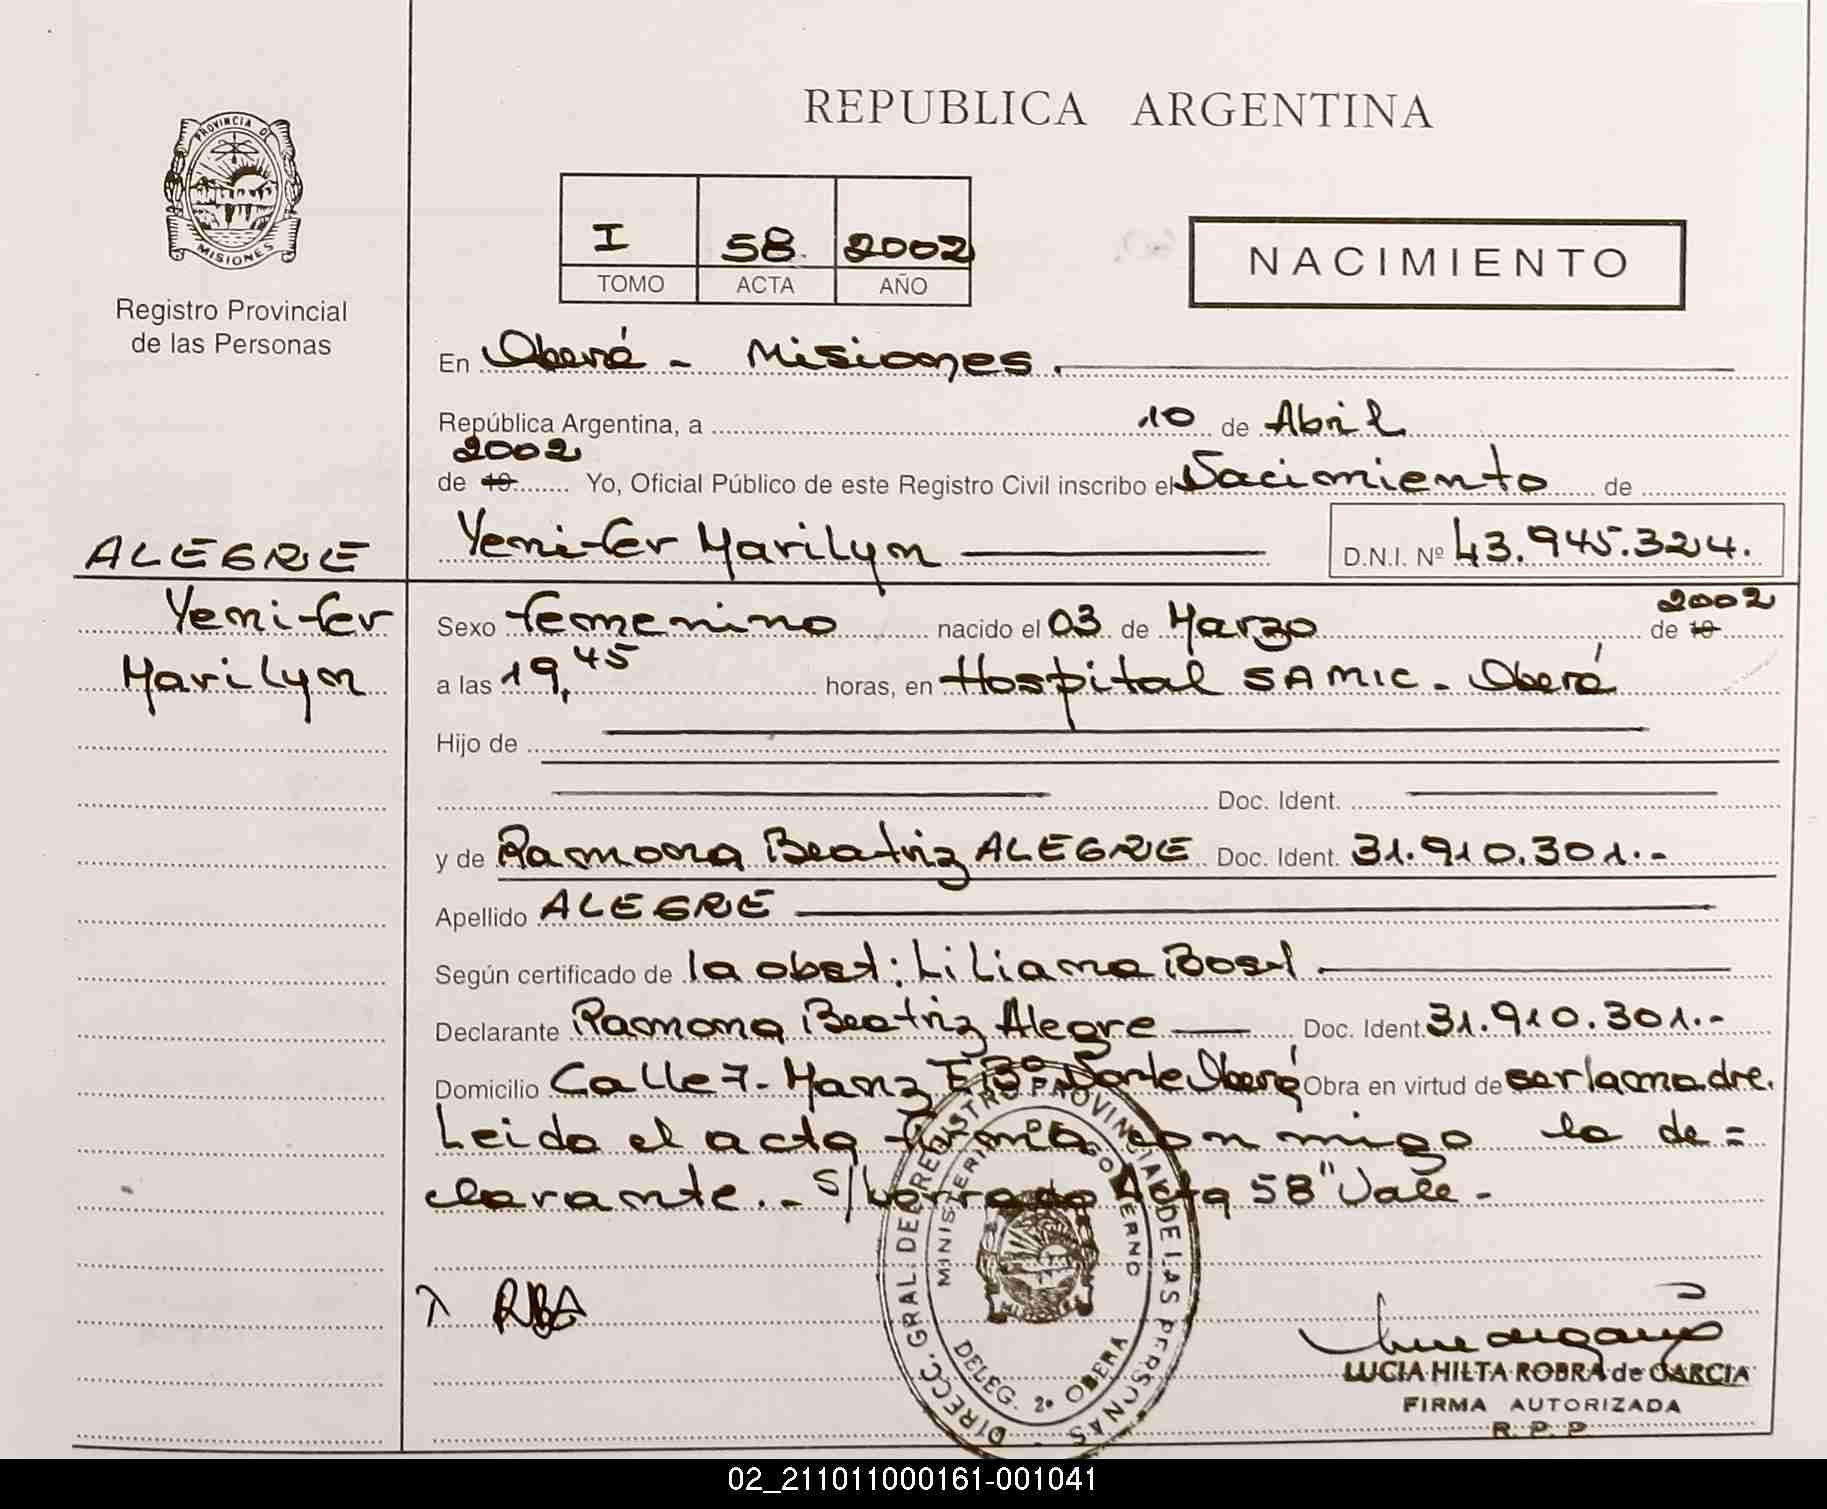 REPUBLICA ARGENTINA
PROVINCIA DE MISIONES
Registro Provincial
de las Personas
I 58 2002
TOMO ACTA AÑO
NACIMIENTO
En Oberá - Misiones.
República Argentina, a 10 de Abril
2002
de 19 Yo, Oficial Público de este Registro Civil inscribo el Nacimiento de
Yenifer Marilyn D.N.I. Nº 43.945.324.
ALEGRE
Yenifer
Marilyn
Sexo femenino nacido el 03 de Marzo de 19 2002
a las 19,45 horas, en Hospital SAMIC - Oberá
Hijo de
Doc. Ident.
y de Ramona Beatriz ALEGRE Doc. Ident. 31.910.301.-
Apellido ALEGRE
Según certificado de la obst: Liliana
Declarante Ramona Beatriz Alegre Doc. Ident. 31.910.301.-
Domicilio Calle 7- Manz Norte Oberá Obra en virtud de ser la madre.
Leida el acta firma conmigo la de=
clarante.- s/borrado Acta 58" Vale-
RBA
DIRECC. GRAL. DEL REGISTRO PROVINCIAL DE LAS PERSONAS
MINISTERIO DE GOBIERNO
MISIONES
DELEG. 2º OBERA
LUCIA HILTA ROBRA de GARCIA
FIRMA AUTORIZADA
R. P. P
02_211011000161-001041